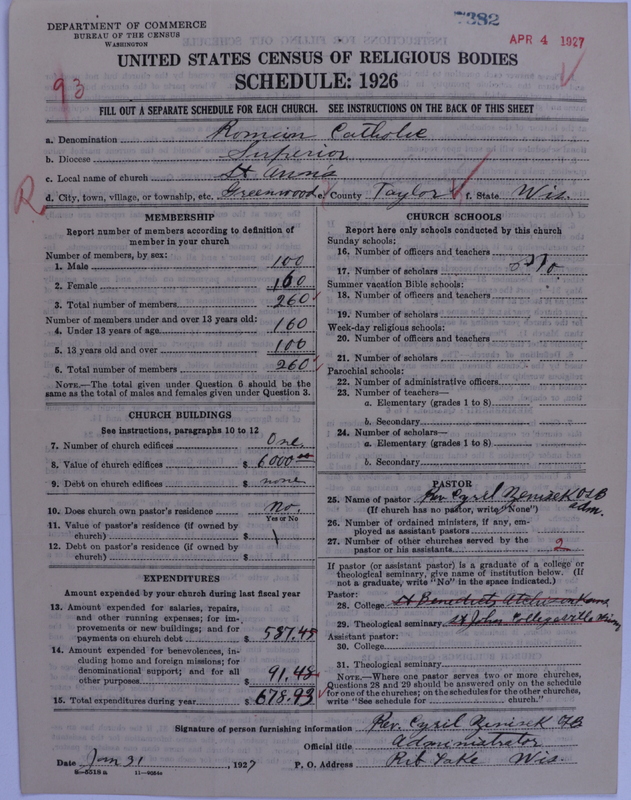 DEPARTMENT OF COMMERCE
BUREAU OF THE CENSUS
WASHINGTON
7382
APR 4 1927
93
UNITED STATES CENSUS OF RELIGIOUS BODIES
SCHEDULE: 1926
FILL OUT A SEPARATE SCHEDULE FOR EACH CHURCH. SEE INSTRUCTIONS ON THE BACK OF THIS SHEET
a. Denomination Roman Catholic
b. Diocese Superior
c. Local name of church St Anns
R
d. City, town, village, or township, etc. Greenwood e. County Taylor f. State Wis.
MEMBERSHIP
Report number of members according to definition of
member in your church
Number of members, by sex:
1. Male 100
2. Female 160
3. Total number of members 260
Number of members under and over 13 years old:
4. Under 13 years of age 160
5. 13 years old and over 100
6. Total number of members 260
NOTE.—The total given under Question 6 should be the
same as the total of males and females given under Question 3.
CHURCH BUILDINGS
See instructions, paragraphs 10 to 12
7. Number of church edifices One
8. Value of church edifices $ 6000 00
9. Debt on church edifices $ none
10. Does church own pastor's residence no.
Yes or No
11. Value of pastor's residence (if owned by
church) $
12. Debt on pastor's residence (if owned by
church) $
EXPENDITURES
Amount expended by your church during last fiscal year
13. Amount expended for salaries, repairs,
and other running expenses; for im-
provements or new buildings; and for
payments on church debt $ 587.45
14. Amount expended for benevolences, in-
cluding home and foreign missions; for
denominational support; and for all
other purposes $ 91.48
15. Total expenditures during year $ 678.93
CHURCH SCHOOLS
Report here only schools conducted by this church
Sunday schools:
16. Number of officers and teachers
17. Number of scholars
Summer vacation Bible schools:
18. Number of officers and teachers
19. Number of scholars
Week-day religious schools:
20. Number of officers and teachers
21. Number of scholars
Parochial schools:
22. Number of administrative officers
23. Number of teachers—
a. Elementary (grades 1 to 8)
b. Secondary
24. Number of scholars—
a. Elementary (grades 1 to 8)
b. Secondary
PASTOR
25. Name of pastor Rev. Cyril Zenisek OSB
(If church has no pastor, write "None") adm.
26. Number of ordained ministers, if any, em-
ployed as assistant pastors
27. Number of other churches served by the
pastor or his assistants 2
If pastor (or assistant pastor) is a graduate of a college or
theological seminary, give name of institution below. (If
not a graduate, write "No" in the space indicated.)
Pastor:
28. College St Benedicts Atchison Kans.
29. Theological seminary St John Collegeville Minn
Assistant pastor:
30. College
31. Theological seminary
NOTE.—Where one pastor serves two or more churches,
Questions 28 and 29 should be answered only on the schedule
for one of the churches; on the schedules for the other churches,
write "See schedule for church."
Signature of person furnishing information Rev. Cyril Zenisek OSB
Official title Administrator
Date Jan 31, 1927 P. O. Address Rib Lake Wis.
8—5318 a 11—9264